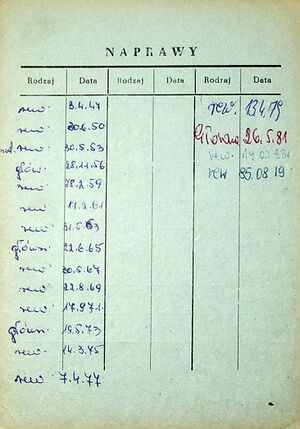 NAPRAWY
Rodzaj Data Rodzaj Data Rodzaj Data
rew. 3.4.47
rew. 20.6.50
30.5.53
głów. 28.11.56
rew 28.2.59
rew 11.2.61
rew 21.5.63
główn. 22.6.65
rew. 20.5.67
rew 22.8.69
rew. 17.9.71.
główn. 19.5.73
rew. 14.3.75
rew 7.4.77
rew. 13.4.79
Główna 26.5.81
rew.
rew 85.08.19